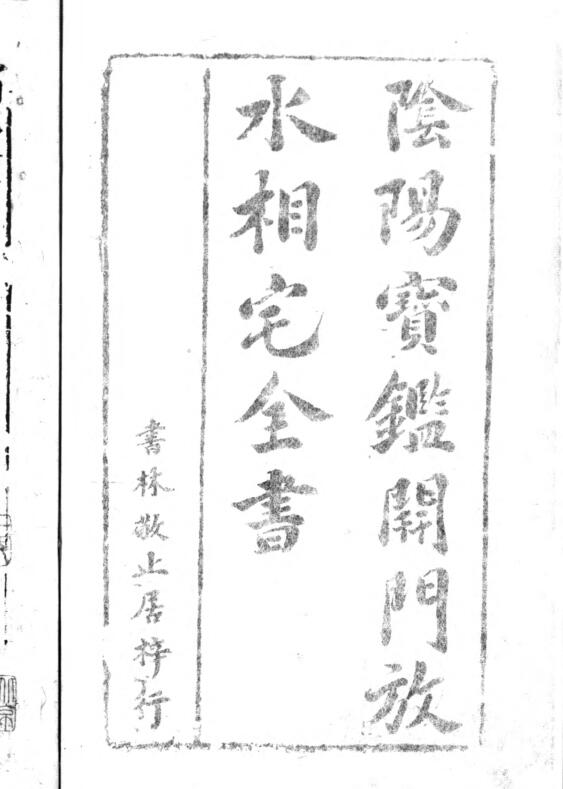 陰陽寳鑑開門放
水相宅全書
書林敬止居梓行